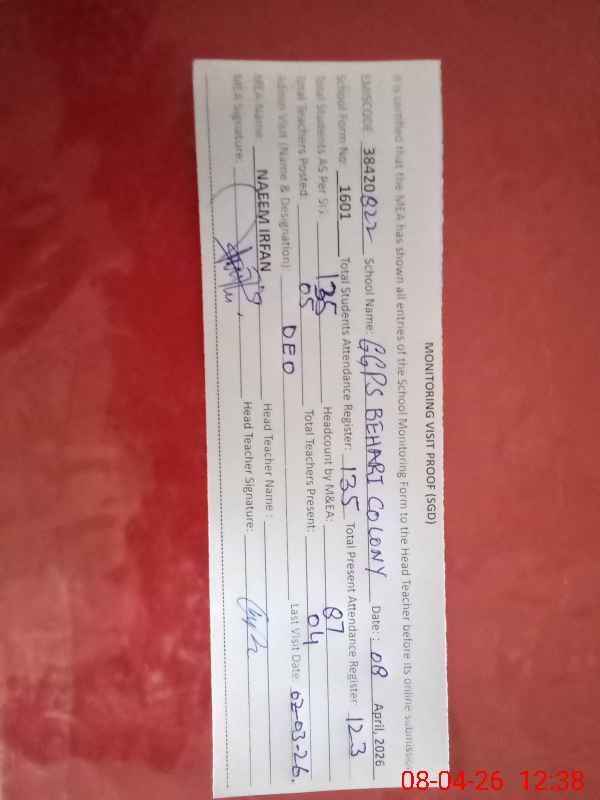 MONITORING VISIT PROOF (SGD)
It is certified that the MEA has shown all entries of the School Monitoring Form to the Head Teacher before its online submission
EMISCODE 38420822 School Name: GGPS BEHARI COLONY Date: 08 April, 2026
School Form No: 1601 Total Students Attendance Register: 135 Total Present Attendance Register 123
Total Students AS Per SIS: 135 Headcount by M&EA: 87
Total Teachers Posted: 05 Total Teachers Present: 04
Admin Visit (Name & Designation): DEO Last Visit Date: 02-03-26.
MEA Name: NAEEM IRFAN Head Teacher Name :
MEA Signature: Head Teacher Signature:
08-04-26 12:38